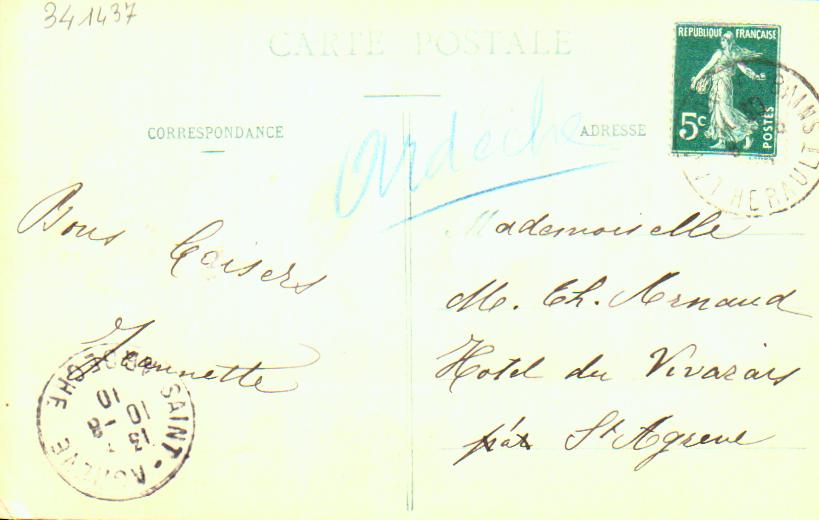 341437
CARTE POSTALE
CORRESPONDANCE
ADRESSE
Ardèche
RÉPUBLIQUE FRANÇAISE
5c
POSTES
BAINS
HERAULT
Bons baisers
Jeannette
Mademoiselle
M. Th. Arnaud
Hotel du Vivarais
St Agreve
SAINT-AGRÈVE
ARDÈCHE
13 -8
10
10